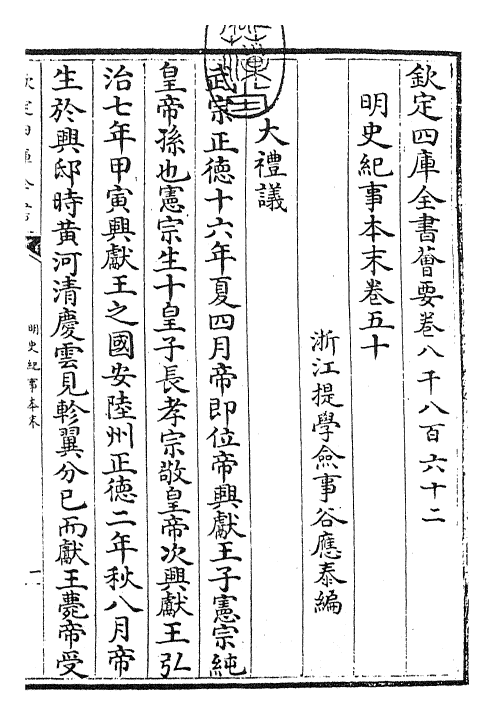 欽定四庫全書薈要卷八千八百六十二
明史紀事本末卷五十
浙江提學僉事谷應泰編
大禮議
武宗正徳十六年夏四月帝即位帝興獻王子憲宗純
皇帝孫也憲宗生十皇子長孝宗敬皇帝次興獻王弘
治七年甲寅興獻王之國安陸州正徳二年秋八月帝
生於興邸時黄河清慶雲見軫翼分已而獻王薨帝受
明史紀事本末
一